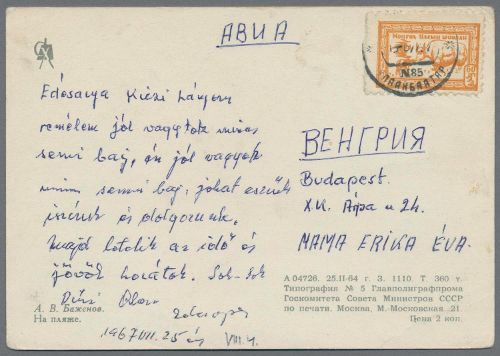 АВИА
МОНГОЛ ШУУДАН
№85
УЛАНБААТАР
Édesanya Kiezi Lányom
remélem jól vagytok nincs
semmi baj, én jól vagyok
nincs semmi baj, jókat eszünk
iszunk és dolgozunk.
majd letelik az idő és
jövök hozátok. Sok-Sok
1967 VII. 25 én VIII. 4.
ВЕНГРИЯ
Budapest.
XX. Árpa u 24.
MAMA ERIKA ÉVA.
А. В. Баженов.
На пляже.
А 04726. 25.II-64 г. З. 1110. Т. 360 т.
Типография № 5 Главполиграфпрома
Госкомитета Совета Министров СССР
по печати. Москва, М.-Московская 21.
Цена 2 коп.